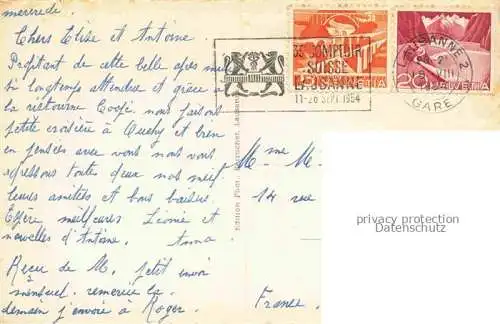 mercredi.
Chers Elise et Antoine
Profitant de cette belle après midi
si longtemps attendue et grâce à
la victorine nous faisons
petite croisière à Ouchy et bien
en pensées avec vous nous vous
adressons toute deux nos meill
leures amitiés et bons baisers.
Espère meilleures Léonie et
nouvelles d'Antoine. Anna
Reçu de M. petit envoi
mensuel. remercie la
demain j'envoie à Roger.
35e COMPTOIR
SUISSE
LAUSANNE
11-26 SEPT. 1954
HELVETIA
20
HELVETIA
LAUSANNE 2
VIII
GARE
Edition Phot. Lausanne
Mme M.
14 rue
France.
privacy protection
Datenschutz